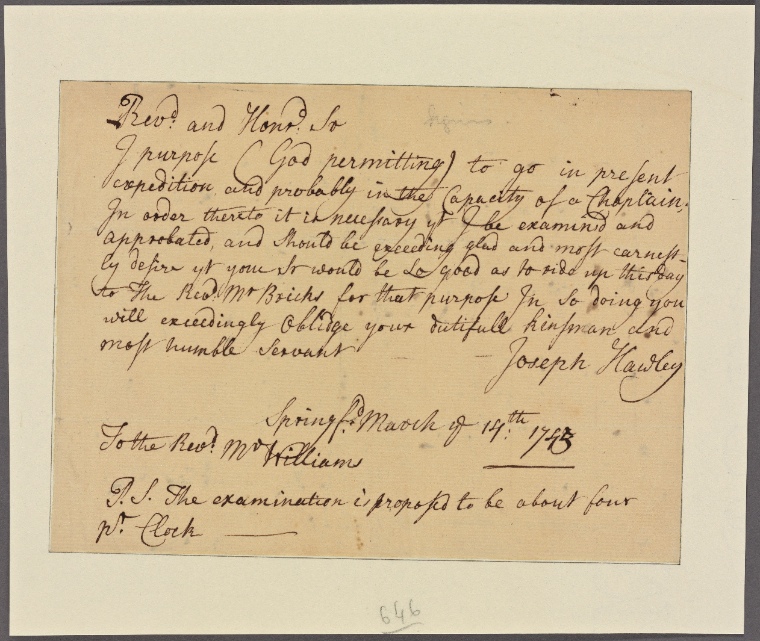 Revd. and Honrd. Sr
I purpose (God permitting) to go in present
expedition, and probably in the Capacity of a Chaplain;
In order thereto it is necessary yt I be examined and
approbated, and should be exceeding glad and most earnest-
ly desire yt you Sr would be so good as to ride up this day
to the Revd. Mr Bricks for that purpose In so doing you
will exceedingly Oblidge your dutifull kinsman and
most humble Servant
Joseph Hawley
Springfd. March ye 14th.
To the Revd. Mr
Williams
P.S. The examination is proposed to be about four
pr Clock
646